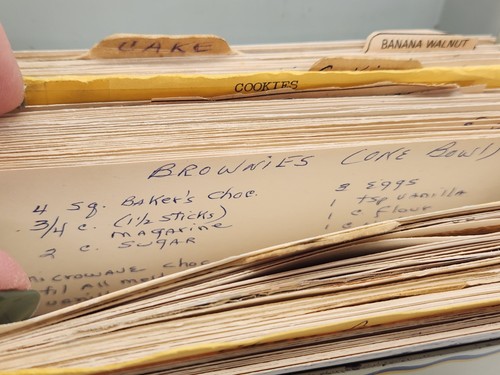 CAKE
BANANA WALNUT
COOKIES
BROWNIES (ONE BOWL)
4 sq. BAKER'S CHOC.
3/4 c. (1½ STICKS)
MAGARINE
2 c. SUGAR
3 EGGS
1 tsp VANILLA
1 c FLOUR
1 c
MICROWAVE CHOC